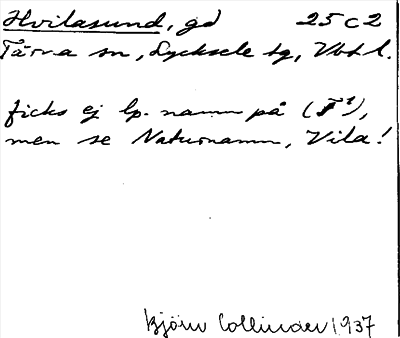 Hvilasund, gd 25 C 2
Tärna sn, Lycksele tg, Vbt l.
ficks ej lp. namn på (F¹),
men se Naturnamn, Vila!
Björn Collinder 1937